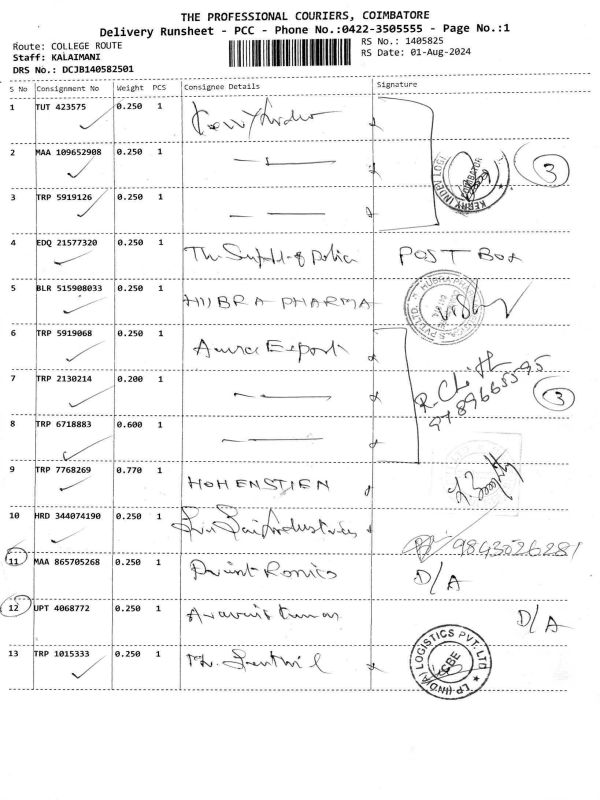 THE PROFESSIONAL COURIERS, COIMBATORE
Delivery Runsheet - PCC - Phone No.:0422-3505555 - Page No.:1
Route: COLLEGE ROUTE
Staff: KALAIMANI
DRS No.: DCJB140582501
RS No.: 1405825
RS Date: 01-Aug-2024
S No Consignment No Weight PCS Consignee Details Signature
1 TUT 423575 0.250 1
2 MAA 109652908 0.250 1
KERRY INDEV LOGI
COIMBATORE
3
3 TRP 5919126 0.250 1
4 EDQ 21577320 0.250 1 The Supdt of Police POST BOX
5 BLR 515908033 0.250 1 HUBRA PHARMA
6 TRP 5919068 0.250 1 Export
7 TRP 2130214 0.200 1
9789665595
3
8 TRP 6718883 0.600 1
9 TRP 7768269 0.770 1 HOHENSTIEN
10 HRD 344074190 0.250 1 Sri Sai Industries
9843026281
11 MAA 865705268 0.250 1 Print Ronics D/A
12 UPT 4068772 0.250 1 Aravind Kumar D/A
13 TRP 1015333 0.250 1
LP (INDIA) LOGISTICS PVT. LTD
CBE